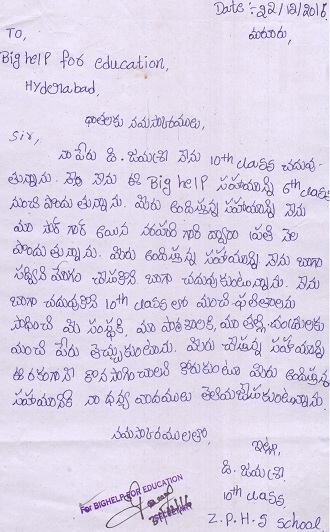 Date :- 22/12/2016
To,
Big help for education,
Hyderabad,
దాతలకు నమస్కారములు,
Sir,
నా పేరు డి. జయశ్రీ నేను 10th class చదువు-
తున్నాను. నేను ఈ Big help సహాయాన్ని 6th class
నుంచి పొందు తున్నాను. మీరు అందిస్తున్న సహాయాన్ని నేను
మా సార్ గారి ద్వారా ప్రతి నెల
పొందుతున్నాను. మీరు అందిస్తున్న సహాయాన్ని నేను బాగా
చేసుకొని బాగా చదువుకుంటున్నాను. నేను
బాగా చదువుకొని 10th class లో మంచి ఫలితాలను
సాధించి మీ సంస్థకి, మా పాఠశాలకి, మా తల్లి దండ్రులకు
మంచి పేరు తెచ్చుకుంటాను. మీరు చేస్తున్న సహాయాన్ని
ఈ రకంగానే కొనసాగించాలని కోరుకుంటూ మీరు అందిస్తున్న
సహాయానికి నా ధన్య వాదములు తెలియచేసుకుంటున్నాను.
నమస్కారములతో,
ఇట్లు,
డి. జయశ్రీ
10th class
Z.P.H.S School
For BIGHELP FOR EDUCATION